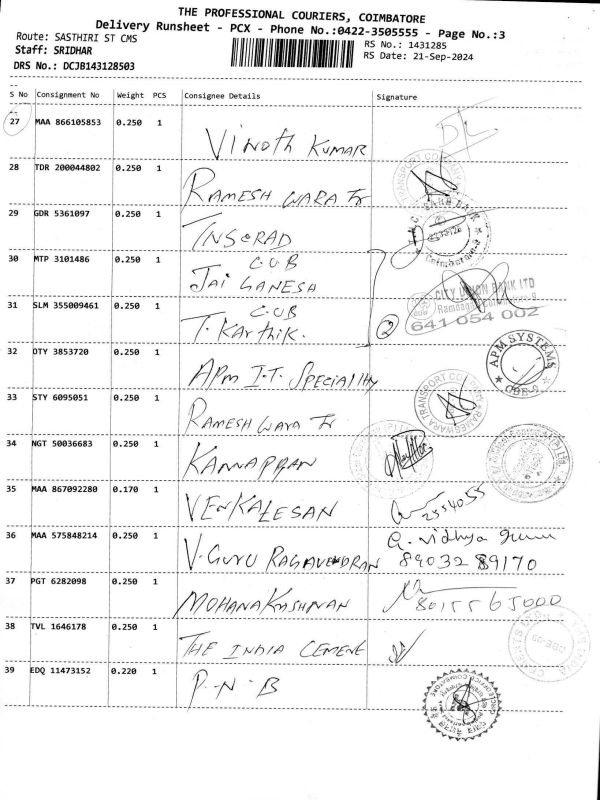 THE PROFESSIONAL COURIERS, COIMBATORE
Delivery Runsheet - PCX - Phone No.:0422-3505555 - Page No.:3
Route: SASTHIRI ST CMS
RS No.: 1431285
Staff: SRIDHAR
RS Date: 21-Sep-2024
DRS No.: DCJB143128503
S No Consignment No Weight PCS Consignee Details Signature
27 MAA 866105853 0.250 1 Vinoth Kumar
28 TDR 200044802 0.250 1 RAMESH WARA Tr
29 GDR 5361097 0.250 1
30 MTP 3101486 0.250 1 C.U.B
JAI GANESH
CITY UNION BANK LTD
31 SLM 355009461 0.250 1 C.U.B
T. Karthik.
2
641 054 002
32 OTY 3853720 0.250 1 APM I.T. SPECIALITY
APM SYSTEMS
CBE-9
33 STY 6095051 0.250 1 RAMESH WARA Tr
34 NGT 50036683 0.250 1 KANNAPPAN
35 MAA 867092280 0.170 1 VENKATESAN
2554055
36 MAA 575848214 0.250 1 V. GURU RAGAVENDRAN
89032 89170
37 PGT 6282098 0.250 1 MOHANA KRISHNAN
80155 65000
38 TVL 1646178 0.250 1 THE INDIA CEMENT
39 EDQ 11473152 0.220 1 P.N.B